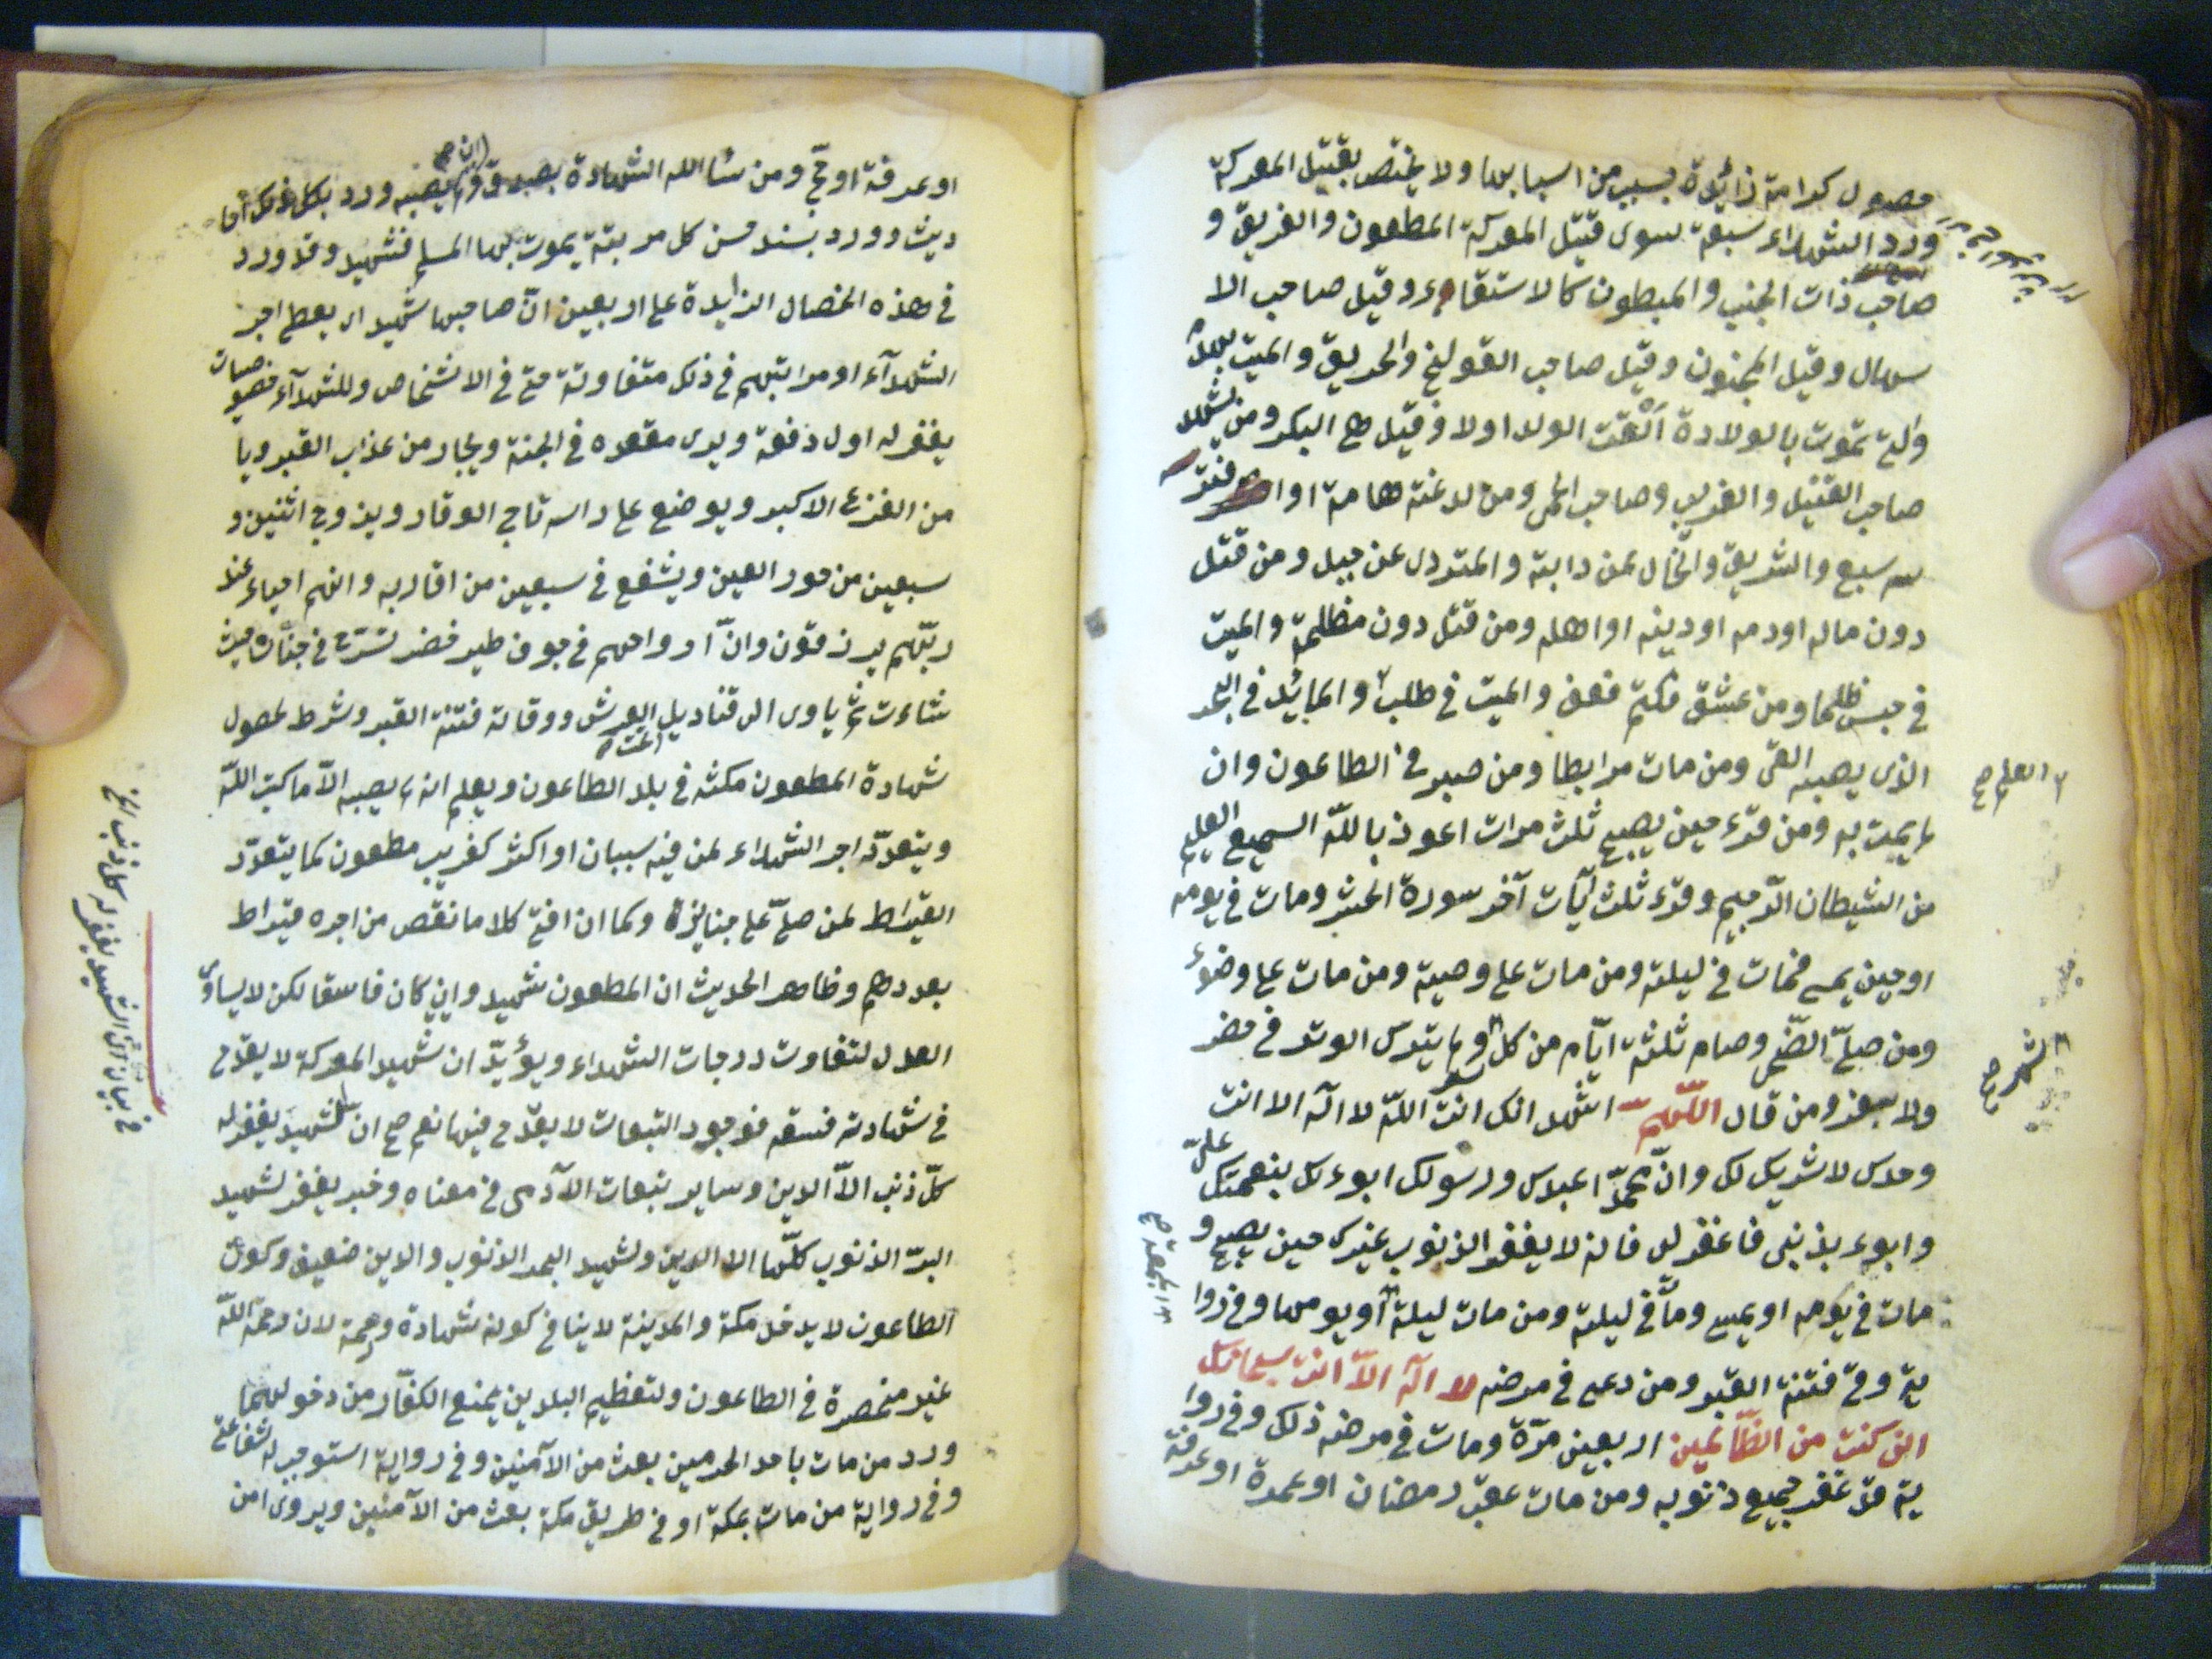 حصول كرامة زائدة بسبب من اسبابها ولا يختص بقتيل المعركة
ورد الشهداء سبعة سوى قتيل المعركة المطعون والغريق و
صاحب ذات الجنب والمبطون كالاستقاء وقيل صاحب الا
سهال وقيل المجنون وقيل صاحب القولنج والحريق والميت بهدم
والتي تموت بالولادة القت الولد اولا وقيل هي البكر ومن
صاحب القتيل والغريب وصاحب الحمى ومن لدغته هامة او افترـ
سه سبع والشريق والخار لمن دابته والمتردى عن جبل ومن قتل
دون ماله او دمه او دينه او اهله ومن قتل دون مظلمة والميت
في حبس ظلما ومن عشق فكتم فعف والميت في طلب والمائد في البحر
الذى يصيبه القئ ومن مات مرابطا ومن صبر في الطاعون وان
لم يمت به ومن قرء حين يصبح ثلث مرات اعوذ بالله السميع العليم
من الشيطان الرجيم وقرء ثلث آيات آخر سورة الحشر ومات في يومه
او حين يمسى فمات في ليلته ومن مات على وصية ومن مات على وضوء
ومن صلى الضحى وصام ثلثة ايام من كل ولم يترك الوتر في حضر
ولا سفر ومن قال اللهم اشهد انك انت الله لا اله الا انت
وحدك لا شريك لك وان محمدا عبدك ورسولك ابوء لك بنعمتك علي
وابوء بذنبى فاغفر لى فانه لا يغفر الذنوب غيرك حين يصبح و
مات في يومه او يمسى ومات في ليلته ومن مات ليلة او يومها وفي روا
ية وقى فتنة القبر ومن دعى في مرضه لا اله الا انت سبحانك
انى كنت من الظالمين اربعين مرة ومات في مرضه ذلك وفي روا
ية غفر جميع ذنوبه ومن مات عقب رمضان او عمرة او عرفة
العلم صح
شهر صح
الجمعة صح
او عرفة او حج ومن سأل الله الشهادة بصدق وان لم يصبه ورد بكل ذلك احا
ديث وورد بسند حسن كل موتة يموت بها المسلم فشهيد وقد ورد
في هذه الخصال الزايدة على اربعين ان صاحبها شهيد اى يعطى اجر
الشهداء او مراتبهم في ذلك متفاوتة حتى في الاشخاص وللشهداء خصوصيات
يغفر له اول دفعة ويرى مقعده في الجنة ويجار من عذاب القبر ويا
من الفزع الاكبر ويوضع على راسه تاج الوقار ويزوج اثنين و
سبعين من حور العين ويشفع في سبعين من اقاربه وانهم احياء عند
ربهم يرزقون وان ارواحهم في جوف طير خضر تسرح في جنات حيث
شاءت ثم ياوى الى قناديل العرش ووقاية فتنة القبر وشرط لحصول
شهادة المطعون مكثه في بلد الطاعون ويعلم انه لم يصبه الا ما كتب الله
ويتعدد اجر الشهداء لمن فيه سببان او اكثر كغريب مطعون كما يتعدد
القيراط لمن صلى على جنايزة وكما ان اقتنى كلابا نقص من اجره قيراط
بعددهم وظاهر الحديث ان المطعون شهيد وان كان فاسقا لكن لا يساوى
العدل لتفاوت درجات الشهداء ويؤيد ان شهيد المعركة لا يقدح
في شهادته فسقه فوجود التبعات لا يقدح فيها نعم صح ان الشهيد يغفر له
كل ذنب الا الدين وساير تبعات الآدمى في معناه وخبر يغفر لشهيد
البر الذنوب كلها الا الدين ولشهيد البحر الذنوب والدين ضعيف وكون
الطاعون لا يدخل مكة والمدينة لا ينافى كونه شهادة ورحمة لان رحمة الله
غير منحصرة في الطاعون ولتعظيم البلدين يمنع الكفار من دخولهما
ورد من مات باحد الحرمين بعث من الآمنين وفي رواية استوجب له شفاعتى
وفي رواية من مات بمكة او في طريق مكة بعث من الآمنين ويروى امن